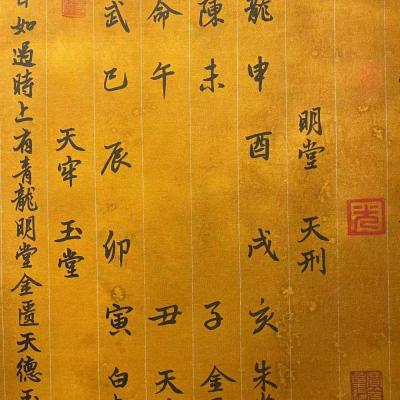 明堂 天刑
龍申酉戌亥朱
陳未 子金
命午 丑天
武巳辰卯寅白
天牢 玉堂
如遇時上有青龍明堂金匱天德玉